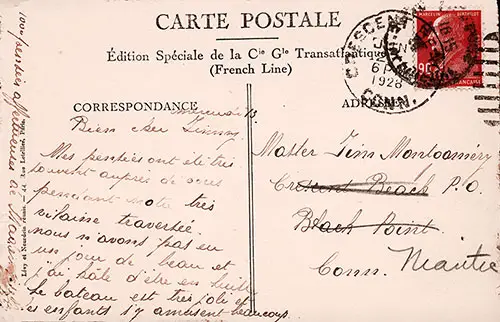 CARTE POSTALE
Édition Spéciale de la Cie Gle Transatlantique
(French Line)
CORRESPONDANCE
ADRESSE
mercredi 13
Bien cher Jimmy
Mes pensées ont été très
souvent auprès de vous
pendant notre très
vilaine traversée.
nous n'avons pas eu
un jour de beau et
j'ai hâte d'être en
Le bateau est très joli et
les enfants s'y amusent beaucoup.
Master Jim Montgomery
Crescent Beach P.O.
Black Point
Conn.
CRESCENT
6 P
1928
CONN.
MARCELIN BERTHELOT
90
Lévy et Neurdein réunis. 44, Rue Letellier, Paris.